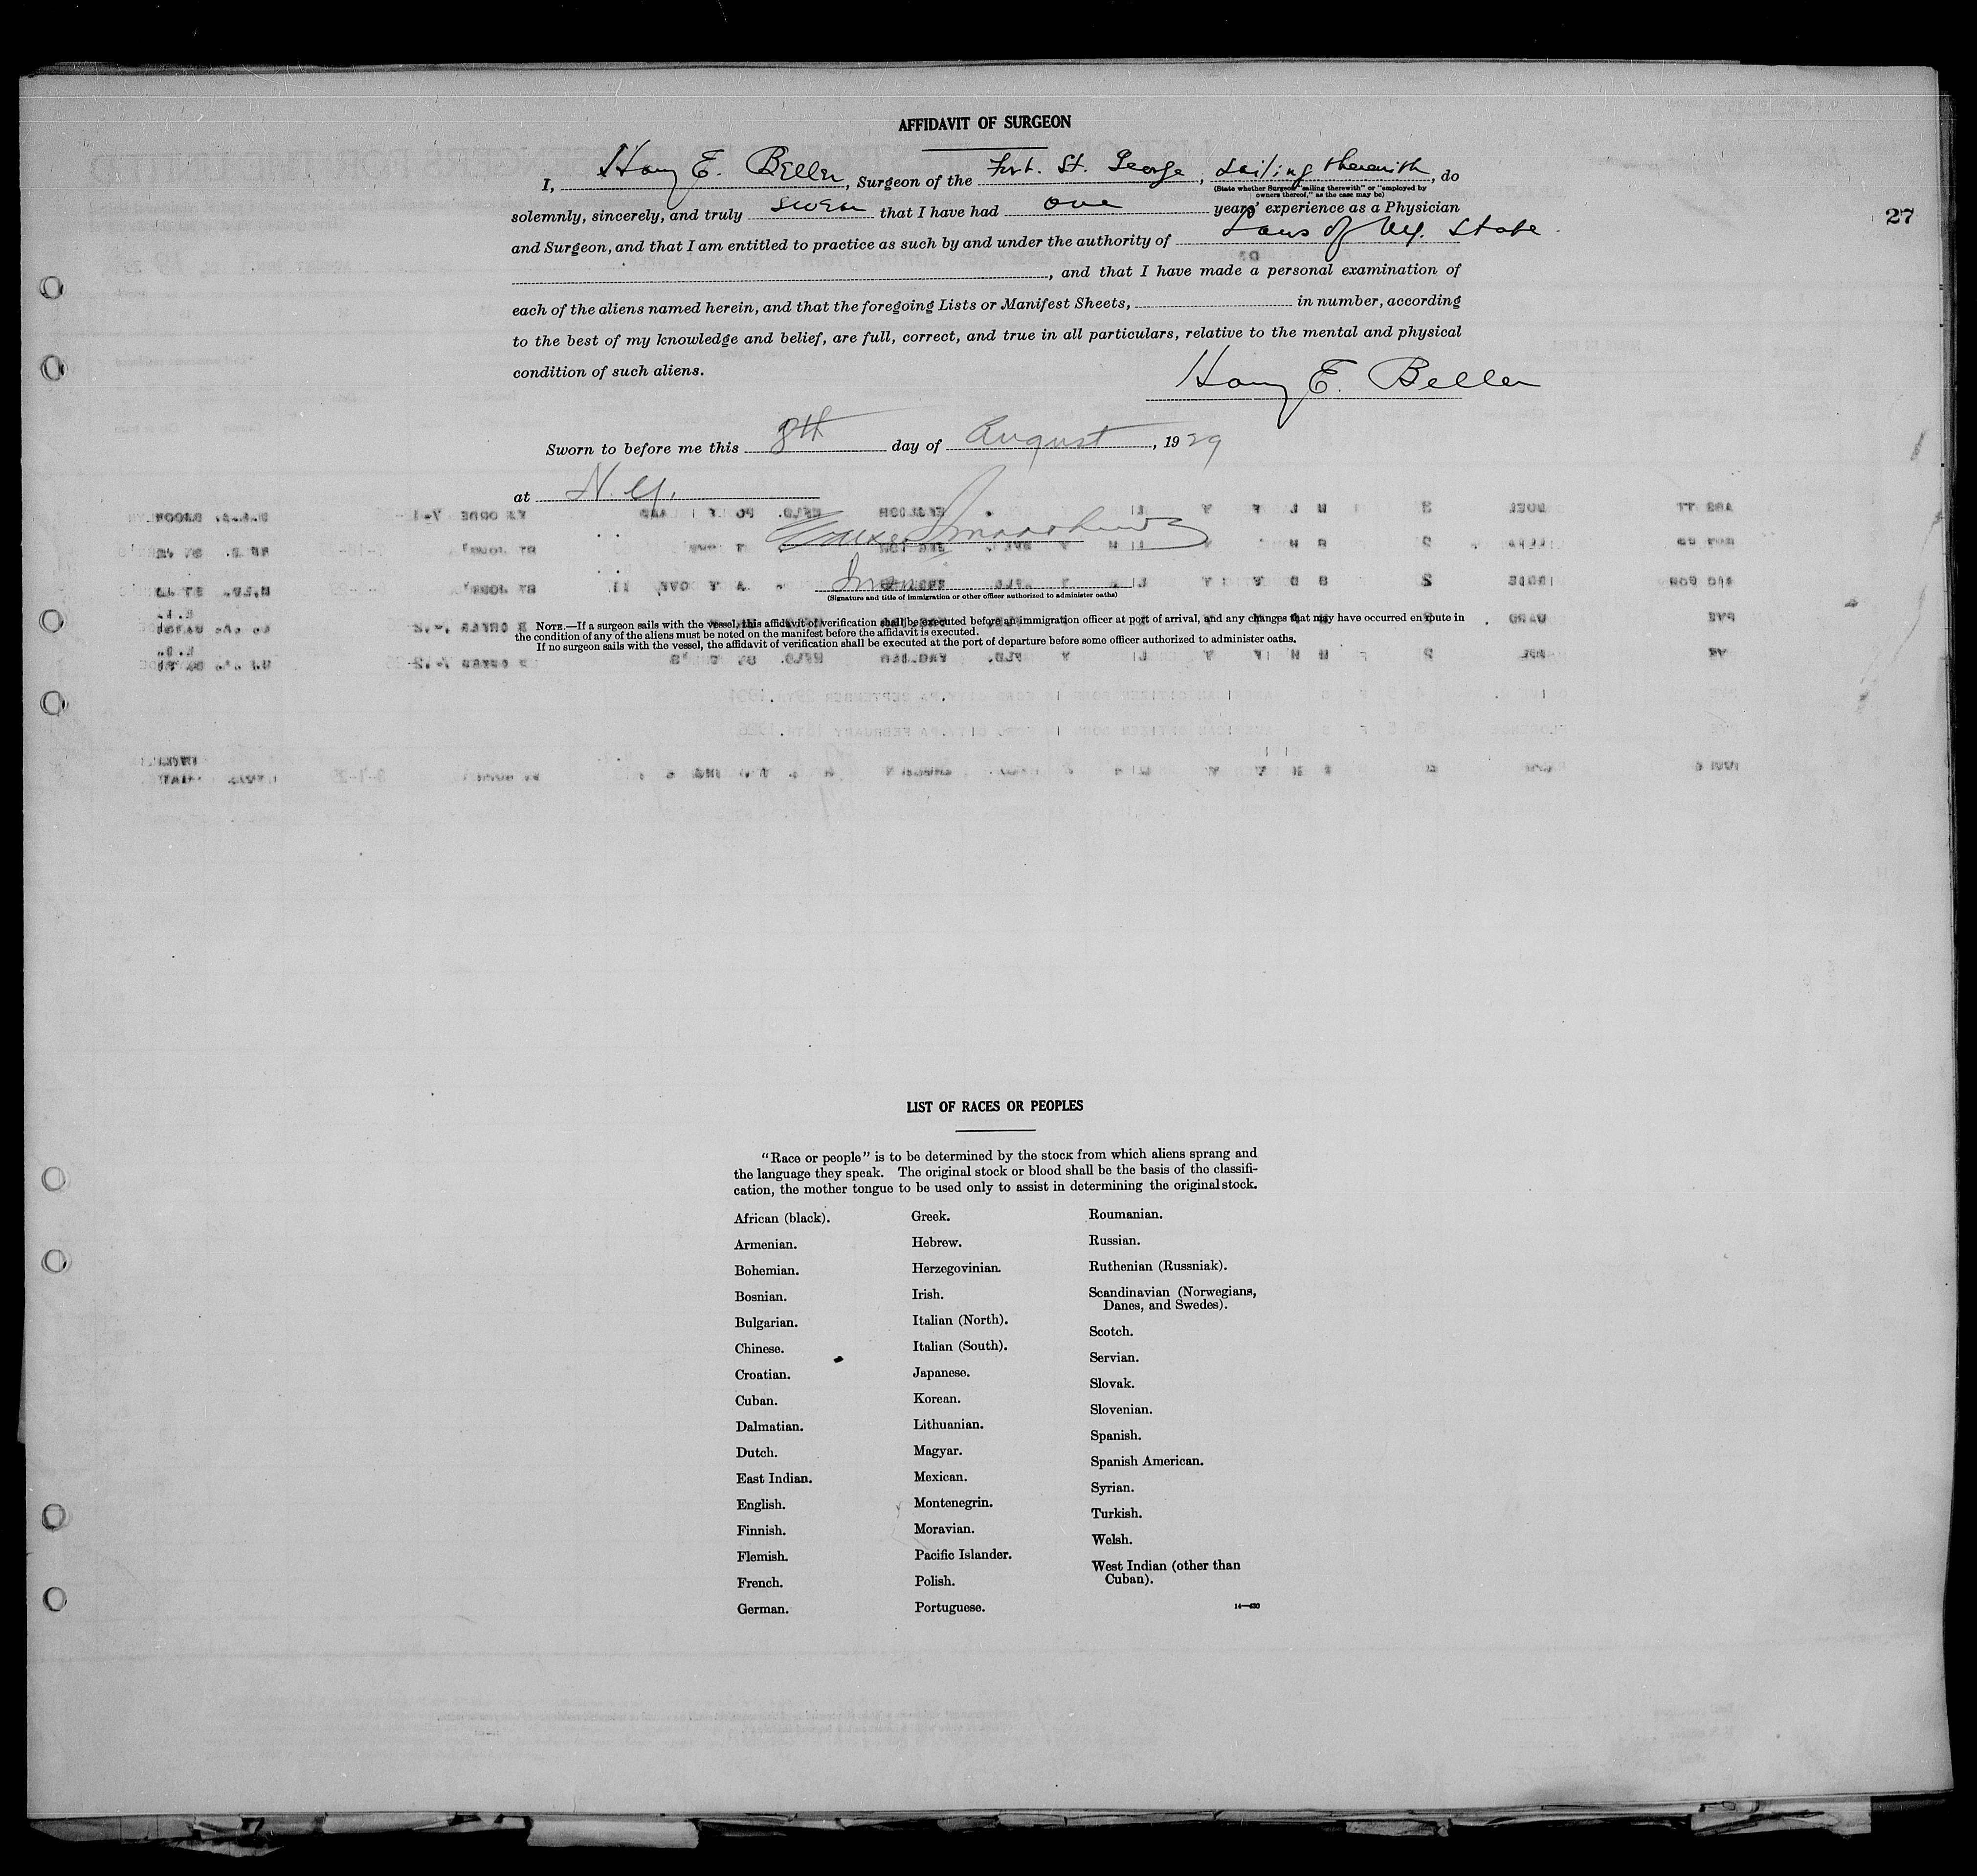 AFFIDAVIT OF SURGEON
I, Harry E. Beller, Surgeon of the Fort. St. George, Sailing therewith, do
(State whether Surgeon "sailing therewith" or "employed by
owners thereof," as the case may be)
solemnly, sincerely, and truly swear that I have had one years' experience as a Physician
27
and Surgeon, and that I am entitled to practice as such by and under the authority of Laws of N.Y. State.
, and that I have made a personal examination of
each of the aliens named herein, and that the foregoing Lists or Manifest Sheets, in number, according
to the best of my knowledge and belief, are full, correct, and true in all particulars, relative to the mental and physical
condition of such aliens.
Harry E. Beller
Sworn to before me this 8th day of August, 1929
at N.Y.
(Signature and title of immigration or other officer authorized to administer oaths)
NOTE.—If a surgeon sails with the vessel, this affidavit of verification shall be executed before an immigration officer at port of arrival, and any changes that may have occurred en route in
the condition of any of the aliens must be noted on the manifest before the affidavit is executed.
If no surgeon sails with the vessel, the affidavit of verification shall be executed at the port of departure before some officer authorized to administer oaths.
LIST OF RACES OR PEOPLES
"Race or people" is to be determined by the stock from which aliens sprang and
the language they speak. The original stock or blood shall be the basis of the classifi-
cation, the mother tongue to be used only to assist in determining the original stock.
African (black).
Armenian.
Bohemian.
Bosnian.
Bulgarian.
Chinese.
Croatian.
Cuban.
Dalmatian.
Dutch.
East Indian.
English.
Finnish.
Flemish.
French.
German.
Greek.
Hebrew.
Herzegovinian.
Irish.
Italian (North).
Italian (South).
Japanese.
Korean.
Lithuanian.
Magyar.
Mexican.
Montenegrin.
Moravian.
Pacific Islander.
Polish.
Portuguese.
Roumanian.
Russian.
Ruthenian (Russniak).
Scandinavian (Norwegians,
Danes, and Swedes).
Scotch.
Servian.
Slovak.
Slovenian.
Spanish.
Spanish American.
Syrian.
Turkish.
Welsh.
West Indian (other than
Cuban).
14—630